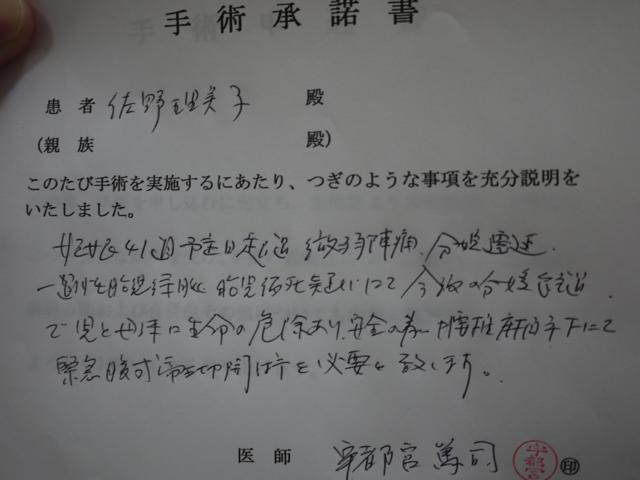 手術承諾書
患者 佐野理美子 殿
(親族 殿)
このたび手術を実施するにあたり、つぎのような事項を充分説明を
いたしました。
妊娠41週 予定日超過 微弱陣痛、分娩遷延、
一過性胎児徐脈 胎児仮死疑いにて 今後の分娩
で児と母体に生命の危険あり、安全の為 腰椎麻酔下にて
緊急腹式帝王切開術を必要と致します。
医師 宇都宮 司 宇都宮 印